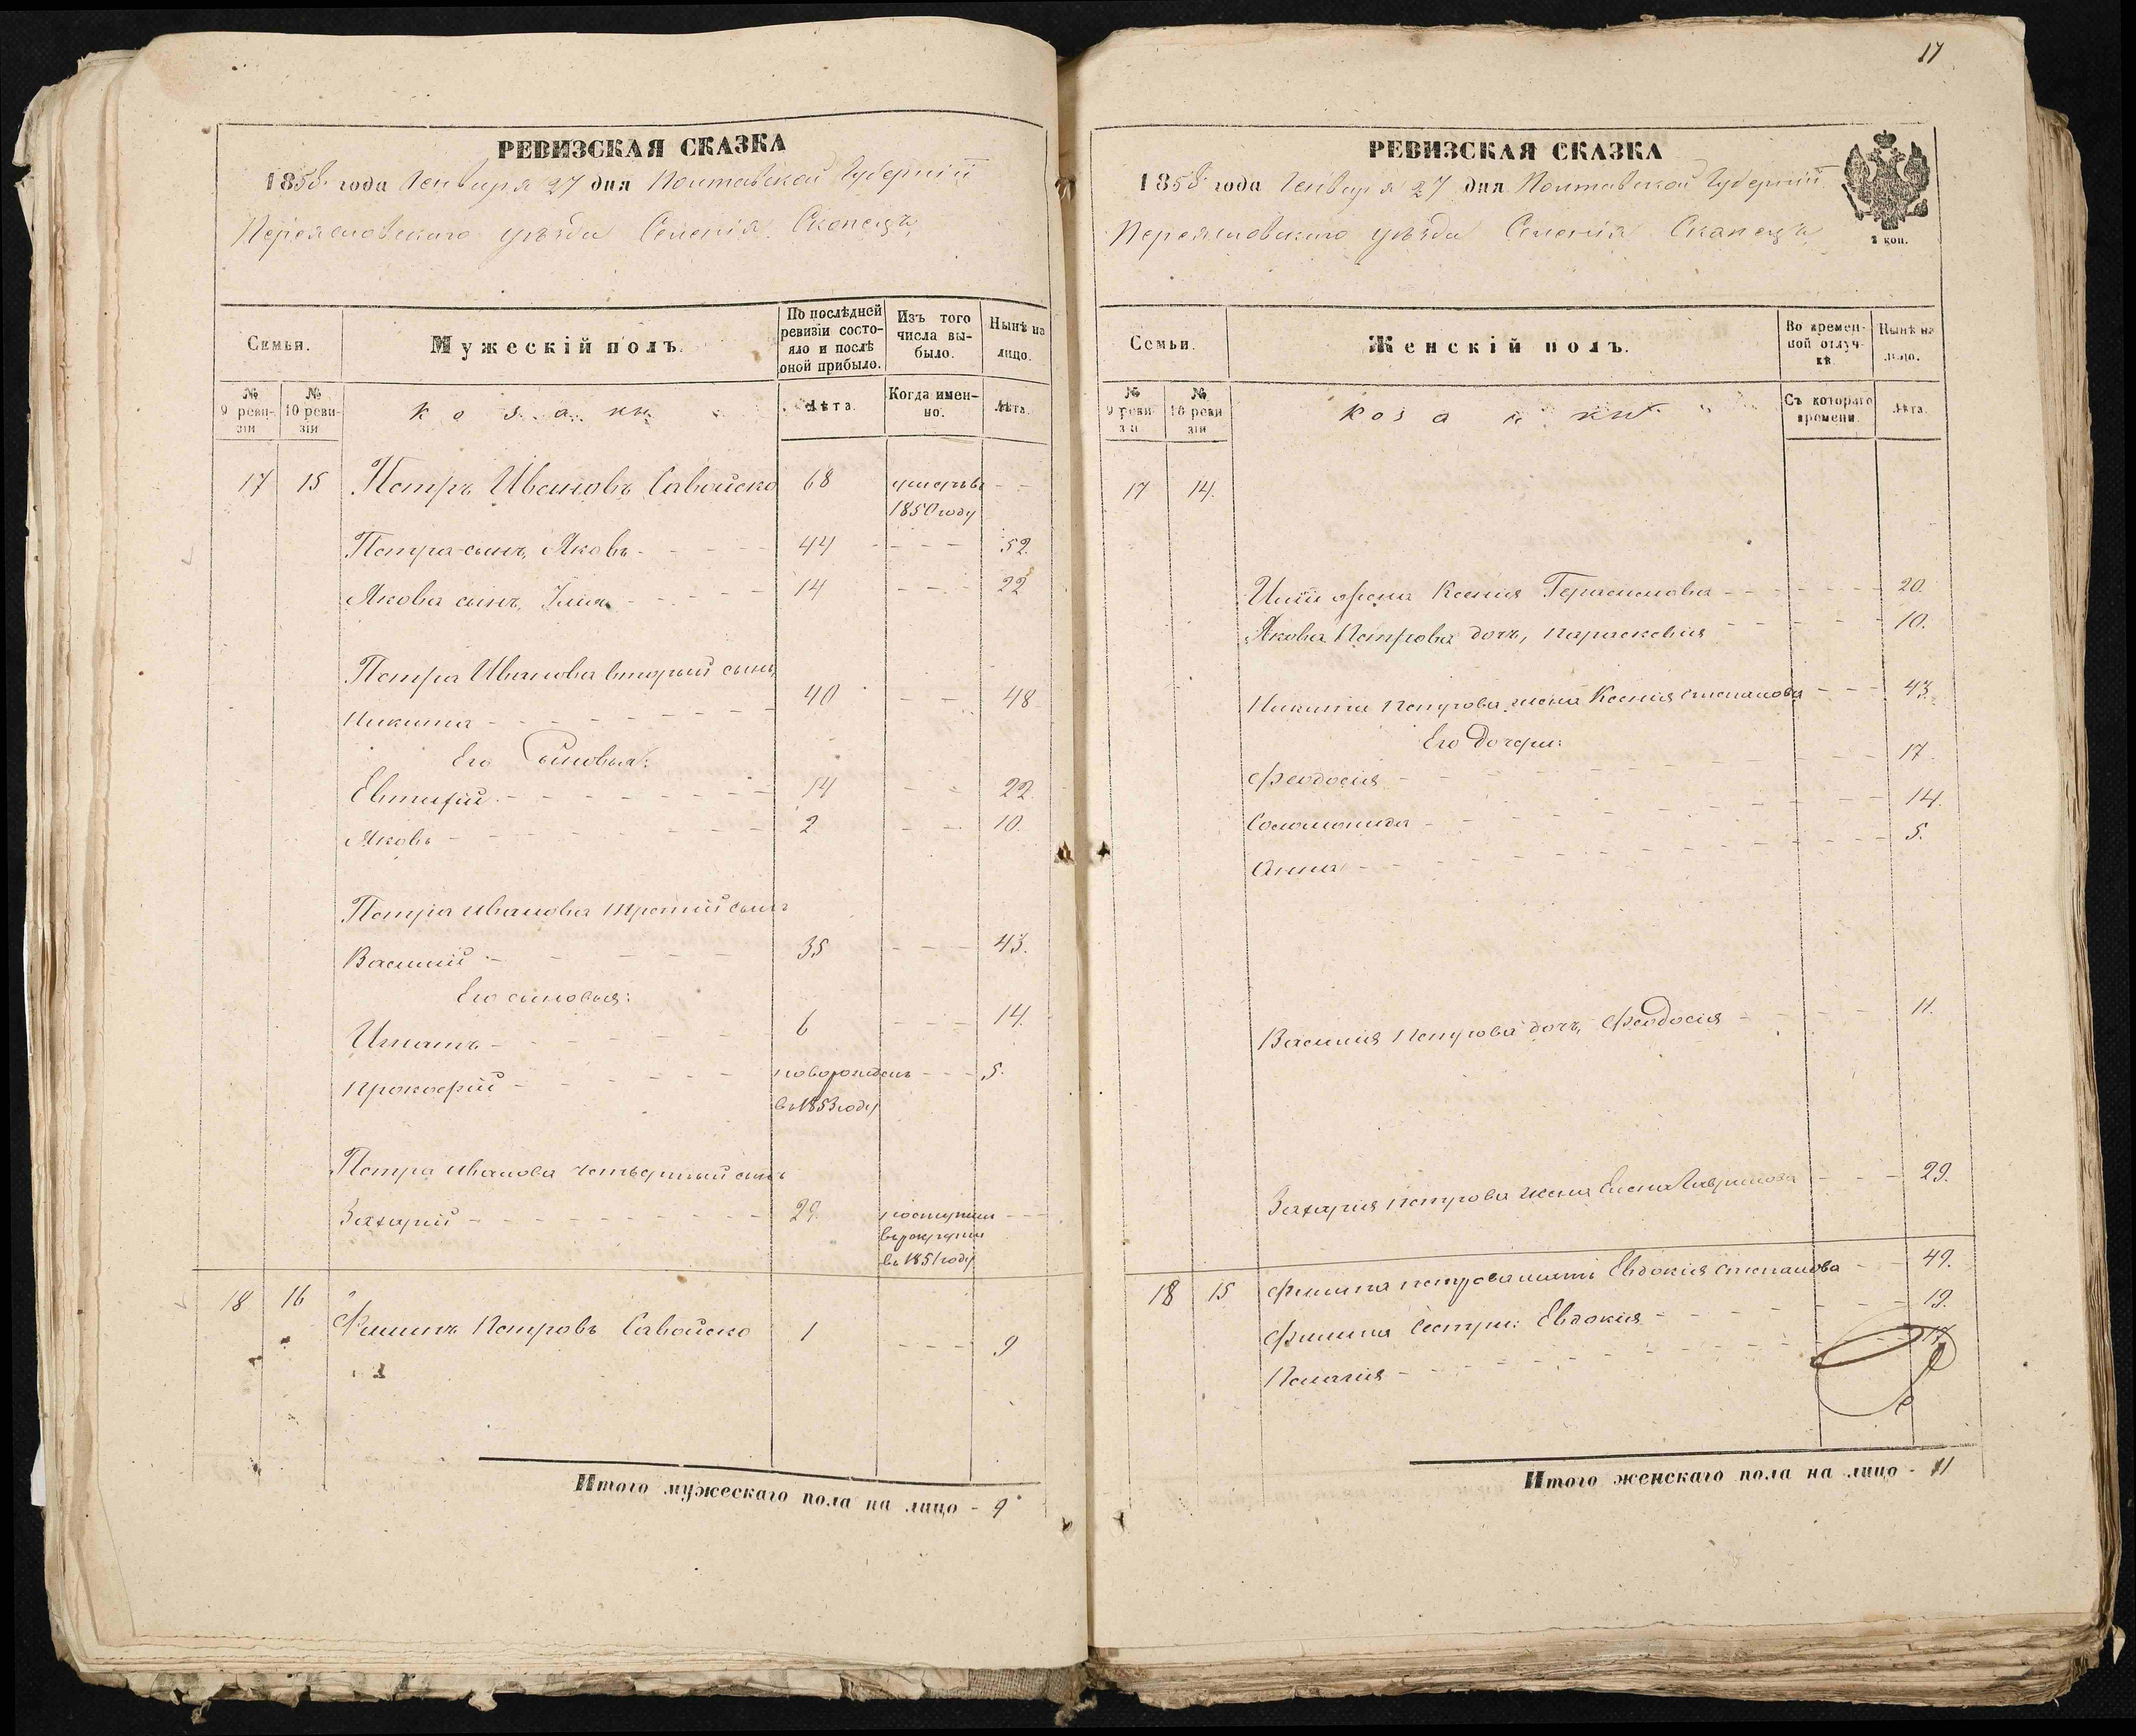 РЕВИЗСКАЯ СКАЗКА
1858 года Генваря 27 дня Полтавской Губерніи
Переяславскаго уѣзда Селенія Скопецъ
Семьи.
Мужескій полъ.
По послѣдней ревизіи состояло и послѣ оной прибыло.
Изъ того числа выбыло.
Нынѣ на лицо.
№ 9 ревизіи
№ 10 ревизіи
козаки
Лѣта.
Когда именно.
Лѣта.
17 15 Петръ Ивановъ Савойско 68 умеръ въ - -
1850 году
Петра сынъ, Яковъ - - - - 44 - - - - 52.
Якова сынъ, Илия - - - - - 14 - - - 22
Петра Иванова вторый сынъ,
Никита - - - - - - - - 40 - - - 48
Его Сыновья:
Евтифій - - - - - - - - 14 - - 22
Яковъ - - - - - - - - 2 - - 10.
Петра Иванова третій сынъ
Василій - - - - - - 35 - - - 43.
Его сыновья:
Игнатъ - - - - - - 6 - - - 14.
Прокофій - - - - - - новорожденъ - - - 5.
въ 1853 году
Петра Иванова четвертый сынъ
Захарій - - - - - - - - - 29. поступил - - -
в рекруты
въ 1851 году
18 16 Филипъ Петровъ Савойско 1 - - - 9
Итого мужескаго пола на лицо - 9
17
РЕВИЗСКАЯ СКАЗКА
1858 года Генваря 27 дня Полтавской Губерніи
Переяславскаго уѣзда Селенія Скопецъ
2 коп.
Семьи.
Женскій полъ.
Во временной отлучкѣ.
Нынѣ на лицо.
№ 9 ревизіи
№ 10 ревизіи
Съ котораго времени.
Лѣта.
17 14.
Иліи жена Ксенія Герасимова - - - - - - 20.
Якова Петрова дочь, Параскевия - - - - - 10.
Никити Петрова жена Ксения Степанова - - - 43.
Его Дочери:
Феодосия - - - - - - - - 17.
Соломонида - - - - - - - - 14.
Анна - - - - - - - - - - 5.
Василия Петрова дочь, Феодосия - - - - - 11.
Захария Петрова жена Елена Гаврилова - - - 29.
18 15 Филипа Петрова мать Евдокия Степанова - - 49.
Филипа Сестры: Евдокия - - - - - - 19.
Пелагия - - - - - - - - - - 17.
Итого женскаго пола на лицо - 11